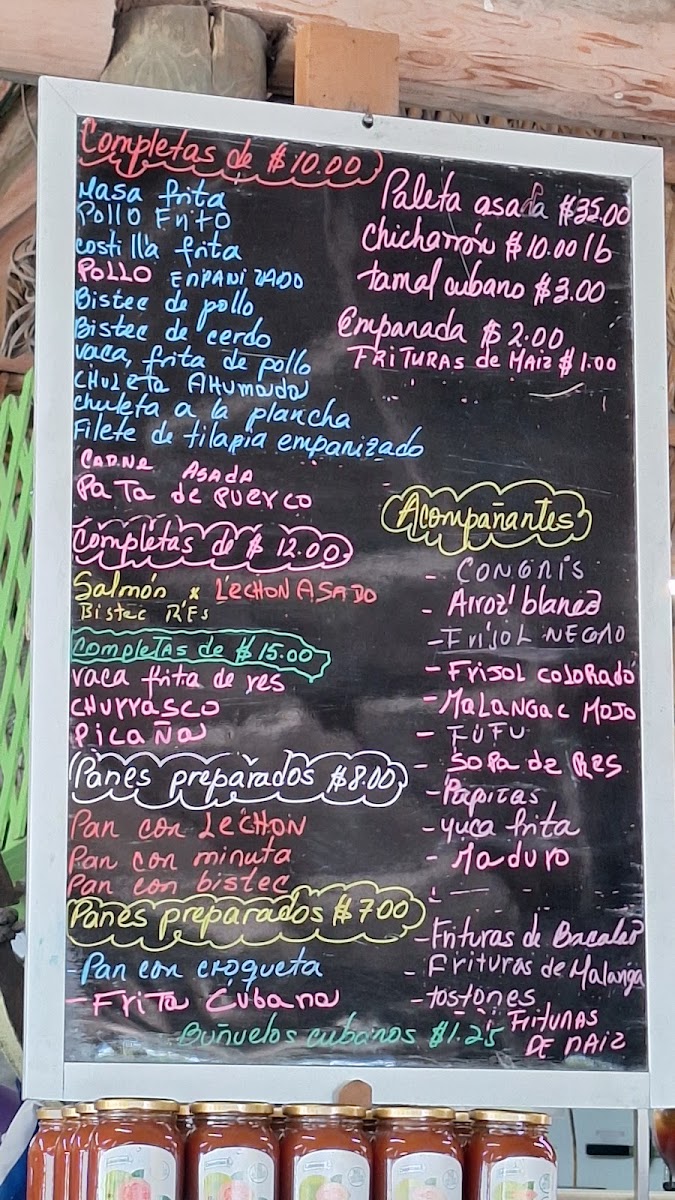 Completas de $10.00
Masa frita
Pollo Frito
costilla frita
Pollo Enpanizado
Bistec de pollo
Bistec de cerdo
vaca frita de pollo
chuleta Ahumada
chuleta a la plancha
Filete de tilapia empanizado
Carne Asada
Pata de puerco
Completas de $12.00
Salmón x Lechon Asado
Bistec Res
Completas de $15.00
vaca frita de res
churrasco
picaña
Panes preparados $8.00
Pan con Lechon
Pan con minuta
Pan con bistec
Panes preparados $7.00
- Pan con croqueta
- Frita Cubana
Buñuelos cubanos $1.25
Paleta asada $35.00
chicharrón $10.00 lb
tamal cubano $3.00
Empanada $2.00
Frituras de Maiz $1.00
Acompañantes
- Congris
- Arroz blanco
- Frijol Negro
- Frisol colorado
- Malanga c Mojo
- Fufu
- Sopa de Res
- Papitas
- yuca frita
- Maduro
- Frituras de Bacalao
- Frituras de Malanga
- tostones
Frituras
de maiz